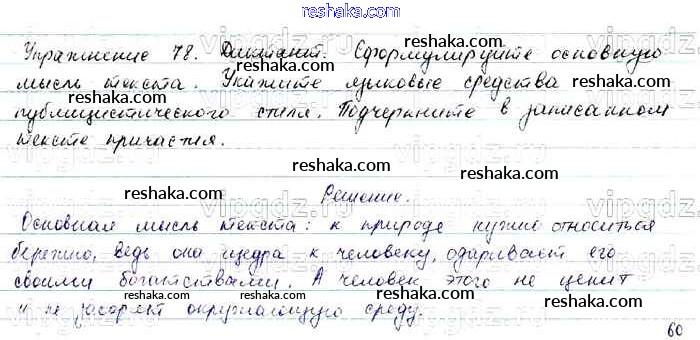 reshaka.com
Упражнение 78. Диктант. Сформулируйте основную
reshaka.com
мысль текста. Укажите языковые средства
reshaka.com
публицистического стиля. Подчеркните в записанном
reshaka.com
тексте причастия.
reshaka.com
reshaka.com
Решение.
reshaka.com
Основная мысль текста: к природе нужно относиться
бережно, ведь она щедра к человеку, одаривает его
reshaka.com
своими богатствами. А человек этого не ценит
reshaka.com
и не засоряет окружающую среду.
reshaka.com
60